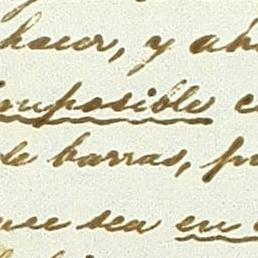 hacer, y
imposible
de barras,
que sea en